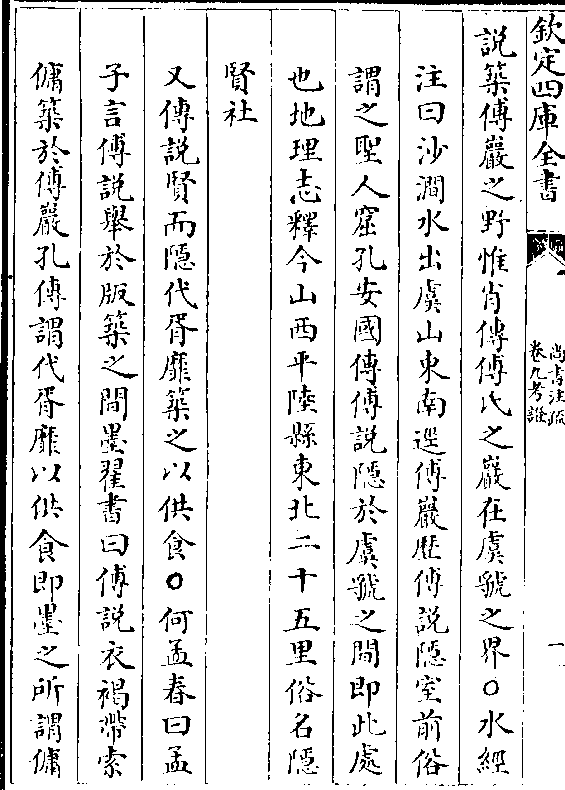 欽定四庫全書
尚書注疏
卷九考證
一
説築傅巖之野惟肖傳傅氏之巖在虞虢之界○水經
注曰沙澗水出虞山東南逕傅巖歴傅説隱室前俗
謂之聖人窟孔安國傳傅説隱於虞虢之間即此處
也地理志釋今山西平陸縣東北二十五里俗名隱
賢社
又傅説賢而隱代胥靡築之以供食○何孟春曰孟
子言傅説舉於版築之間墨翟書曰傅説衣褐帶索
傭築於傅巖孔傳謂代胥靡以供食即墨之所謂傭